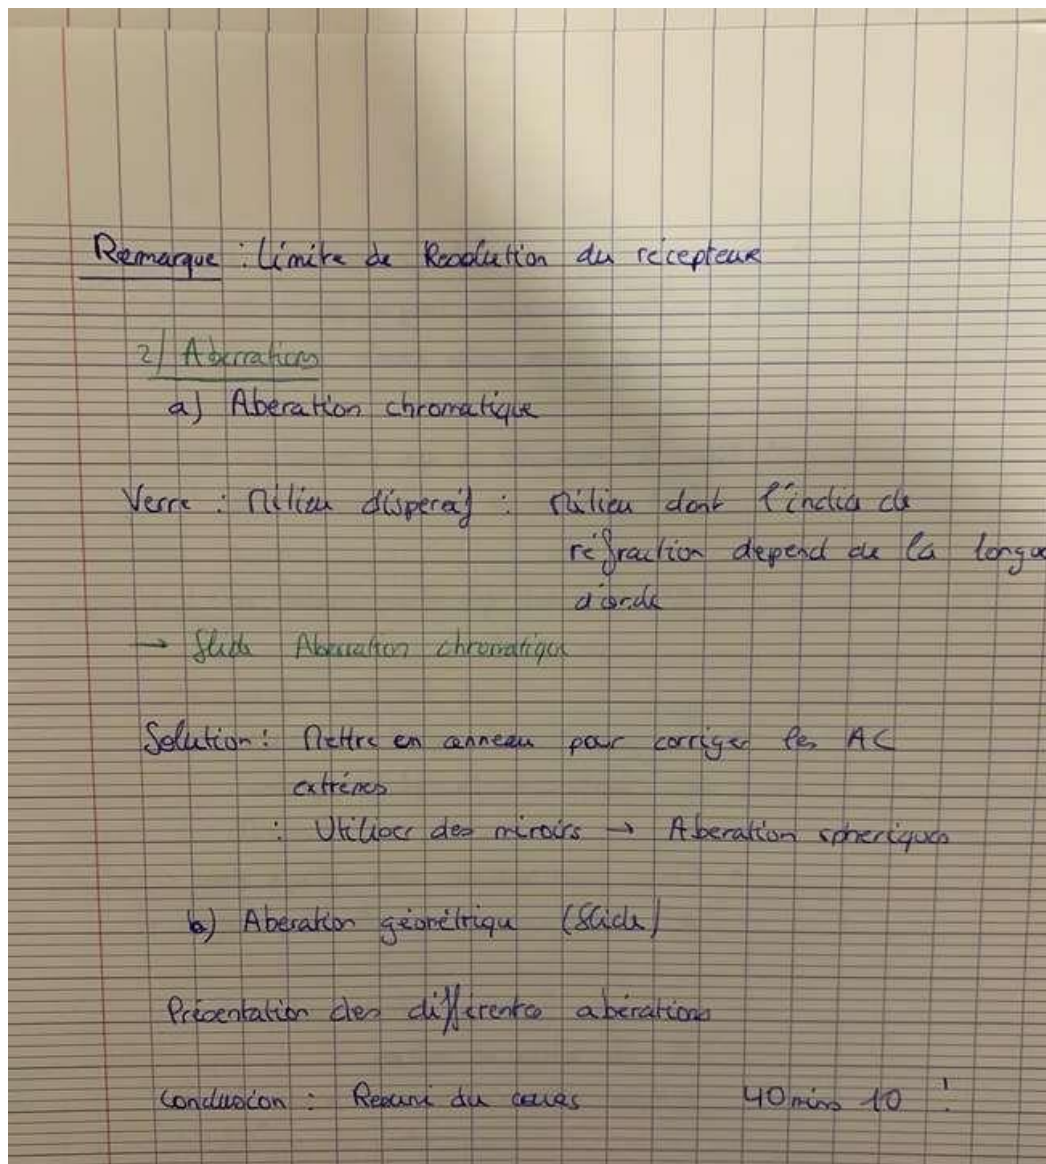 Remarque : Limite de Resolution du récepteur
2) Aberrations
a) Aberation chromatique
Verre : Milieu dispersif : Milieu dont l'indice de
réfraction depend de la longue
d'onde
→ Slide Aberration chromatique
Solution : Mettre en anneau pour corriger les AC
extrêmes
: Utiliser des miroirs → Aberation spheriques
b) Aberation géométrique (Slide)
Présentation des différentes abérations
Conclusion : Resumé du cours 40 mins 10 !